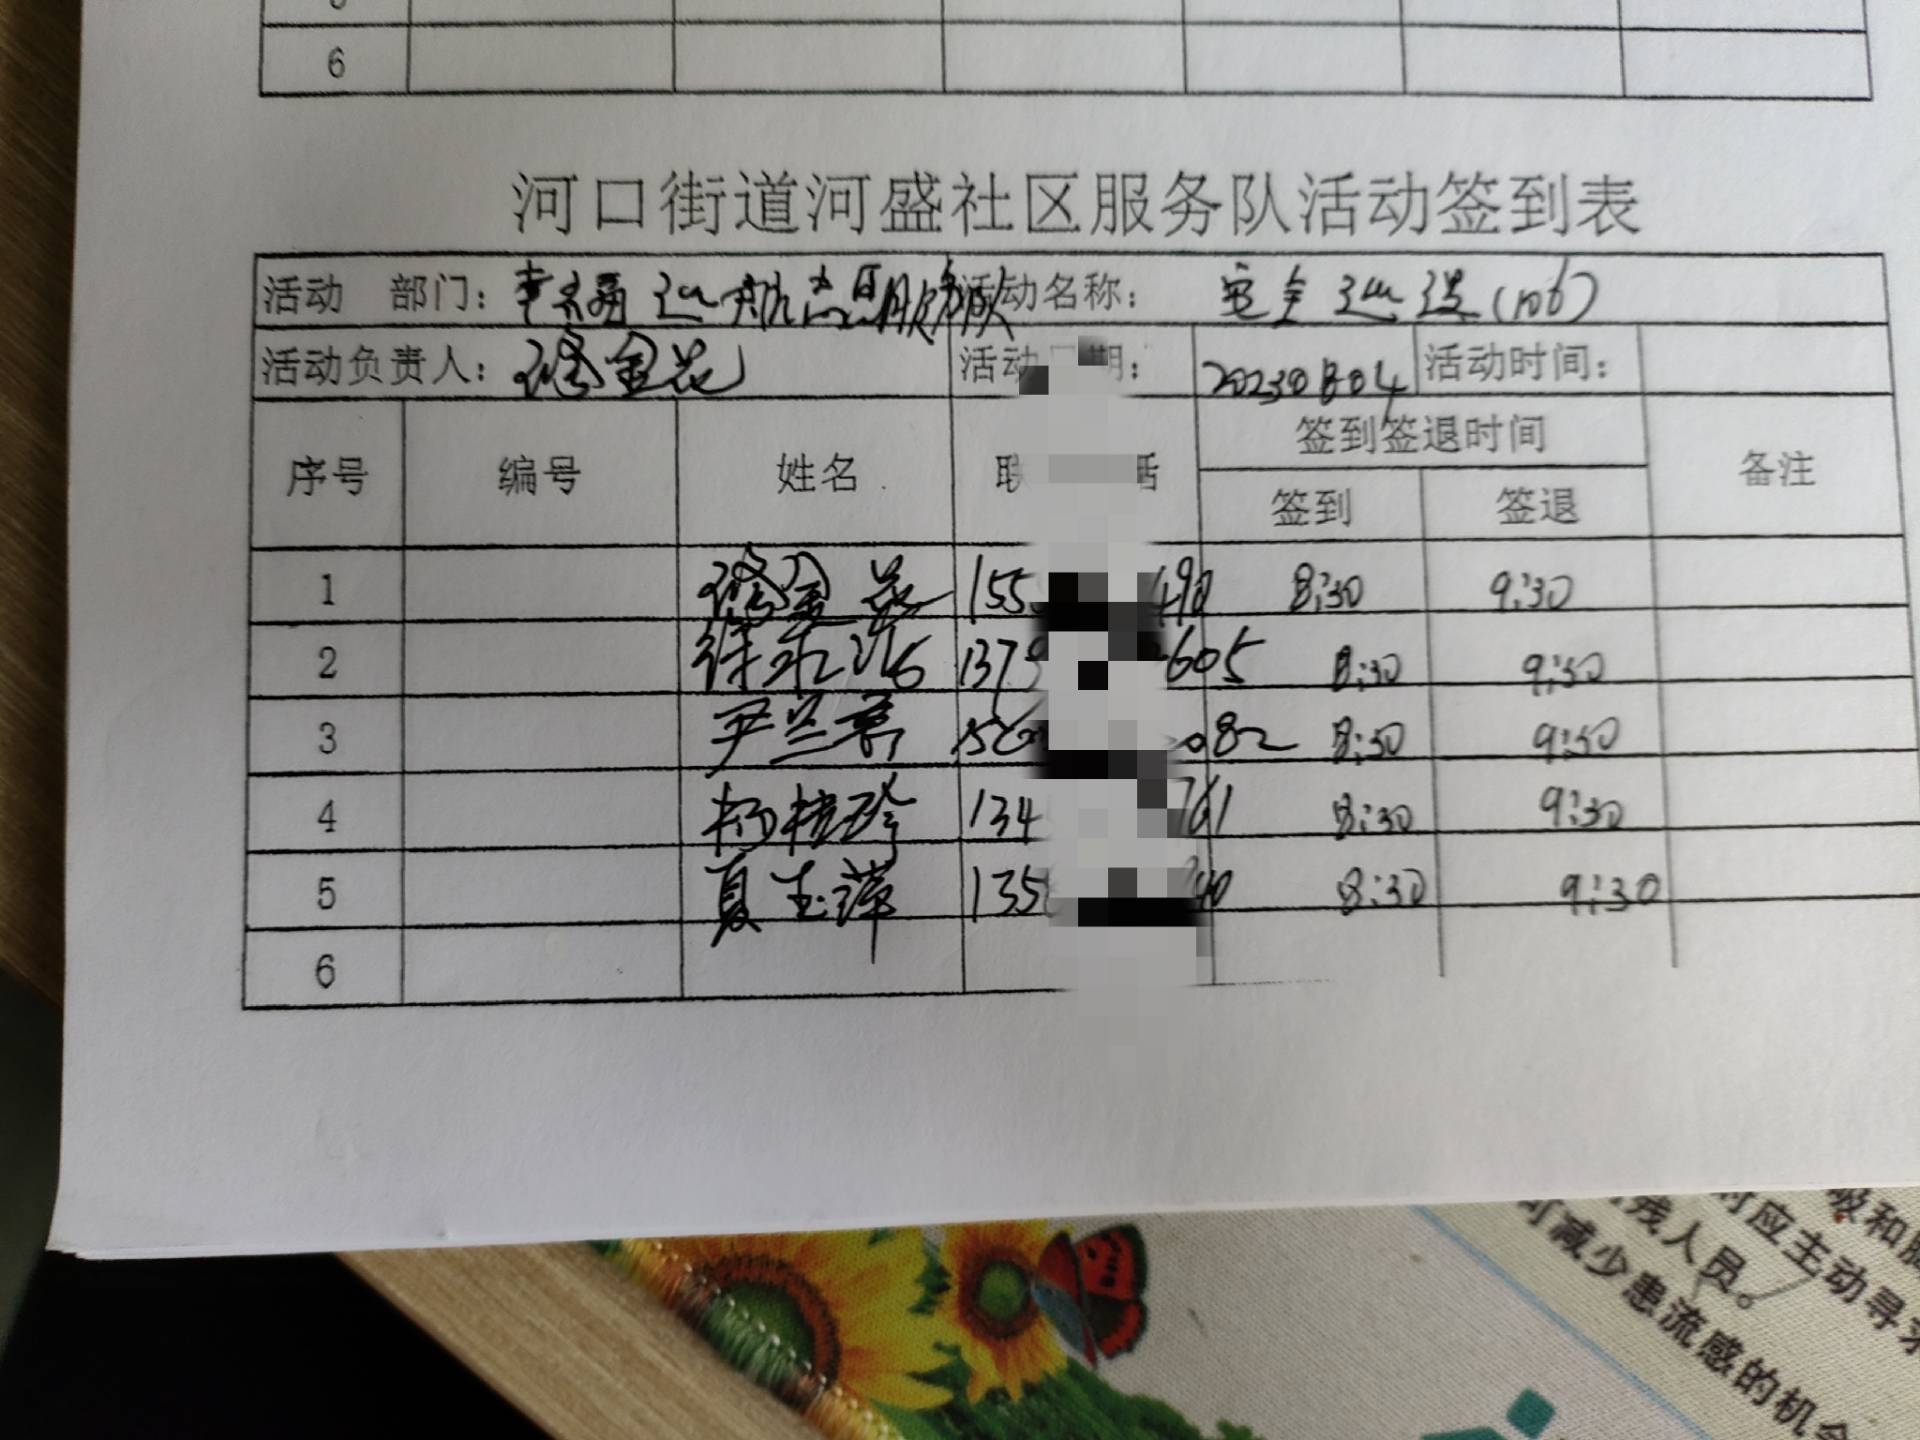 6
河口街道河盛社区服务队活动签到表
活动 部门: 幸福 志愿服务队 活动名称: 安全 (106)
活动负责人: 金花 活动 期: 20230804 活动时间:
序号 编号 姓名 联 话 签到签退时间 备注
签到 签退
1 金花 155 490 8:30 9:30
2 徐永 137 605 8:30 9:30
3 尹兰 082 8:30 9:30
4 杨桂玲 134 761 8:30 9:30
5 夏玉萍 135 8:30 9:30
6
吸和
时应主动寻求
残人员。
可减少患流感的机会